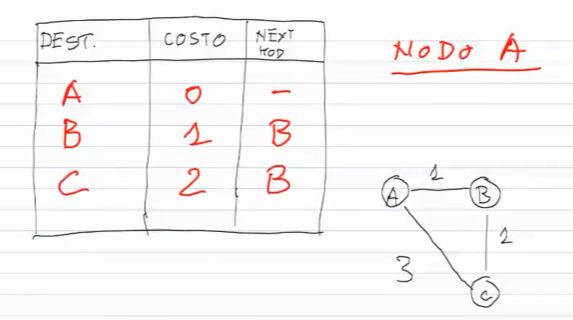 DEST. COSTO NEXT HOP
A 0 -
B 1 B
C 2 B
NODO A
A 1 B
1
3
C